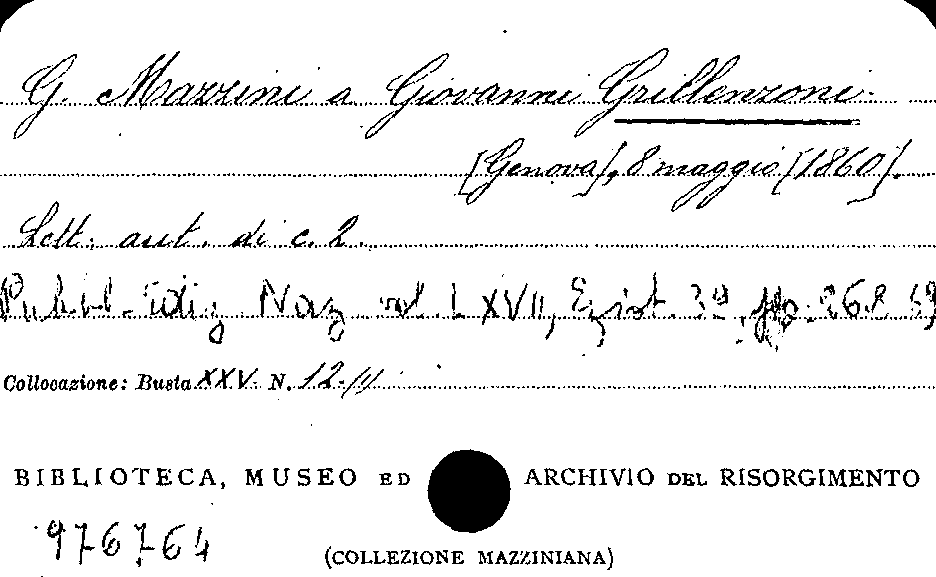 G. Mazzini a Giovanni Grillenzoni.
[Genova], 8 maggio [1860].
Lett. aut. di c. 2.
Pubbl. Ediz. Naz. vol. LXVII, Epist. 39,
Collocazione: Busta XXV N. 12
BIBLIOTECA, MUSEO ED ARCHIVIO DEL RISORGIMENTO
976764
(COLLEZIONE MAZZINIANA)